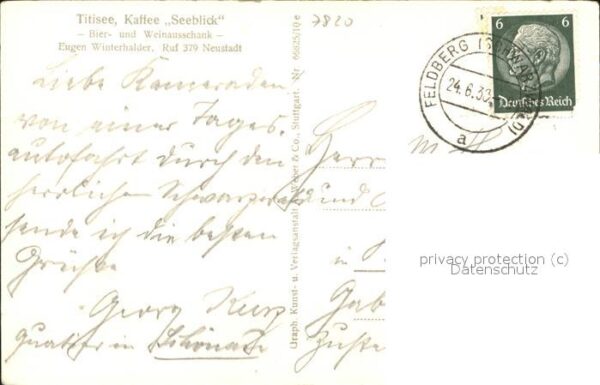 Titisee, Kaffee „Seeblick"
— Bier- und Weinausschank —
Eugen Winterhalder. Ruf 379 Neustadt
7820
Liebe Kameraden
von einer Tages-
autofahrt durch den
herrlichen Schwarzwald
sende ich die besten
Grüße
Georg
Quartier in Schönau
Graph. Kunst- u. Verlagsanstalt Weber & Co., Stuttgart. Nr. 66625/10e
6 6
Deutsches Reich
FELDBERG (SCHWARZWALD)
24.6.39
a
Herrn
und
in
privacy protection (c)
Datenschutz